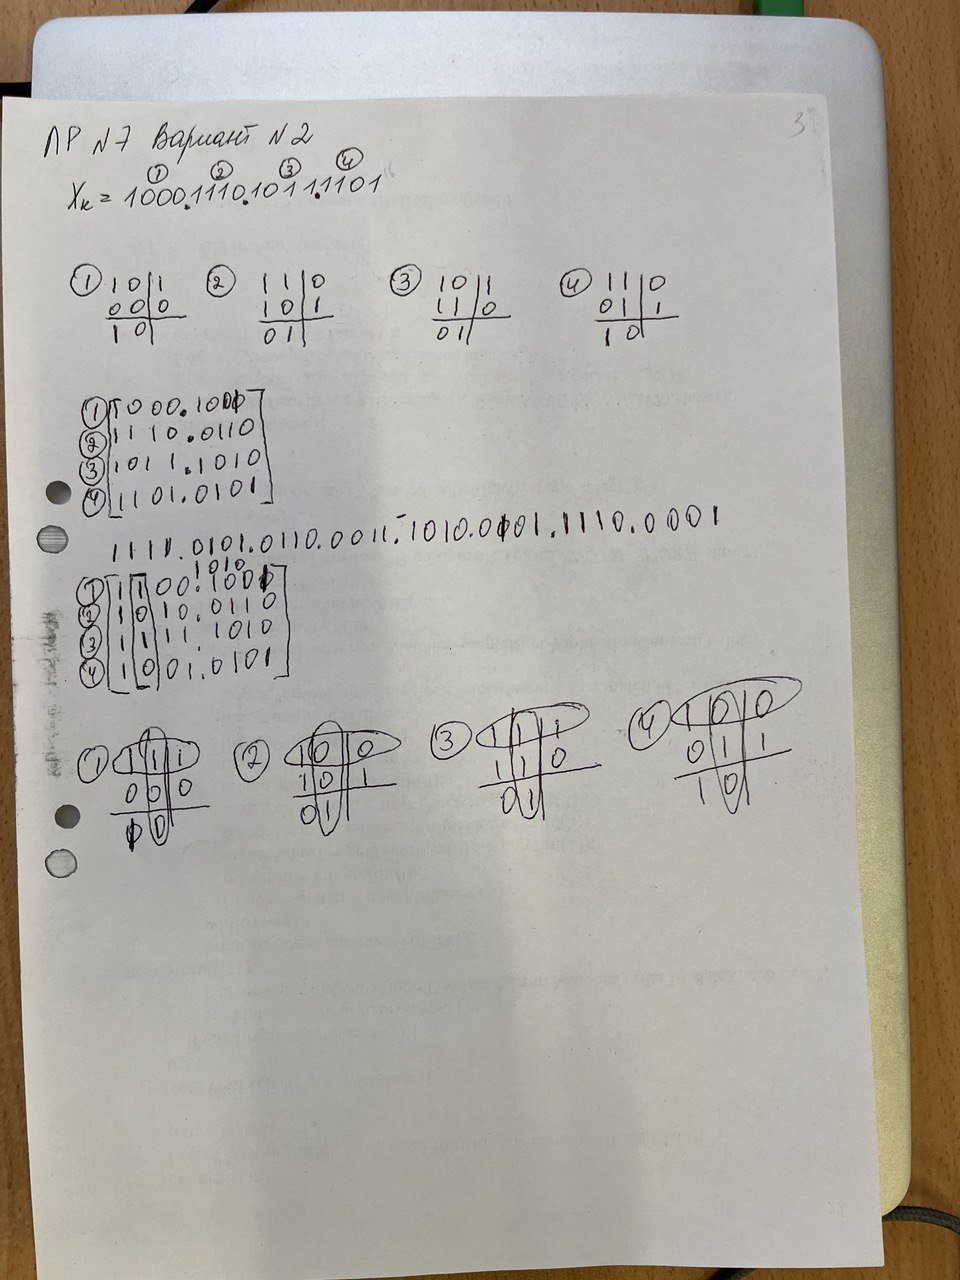 3
ЛР №7 Вариант №2
① ② ③ ④
Xк = 1000.1110.1011.1101
① 1 0 | 1 ② 1 1 | 0 ③ 1 0 | 1 ④ 1 1 | 0
0 0 | 0 1 0 | 1 1 1 | 0 0 1 | 1
1 0 | 0 1 | 0 1 | 1 0 |
① 1000.1000
② 1110.0110
③ 1011.1010
④ 1101.0101
1111.0101.0110.0011.1010.0101.1110.0001
1010
① 1100.1000
② 1010.0110
③ 1111.1010
④ 1001.0101
① 1 | 1 | 1 ② 1 | 0 | 0 ③ 1 | 1 | 1 ④ 1 | 0 | 0
0 | 0 | 0 1 | 0 | 1 1 | 1 | 0 0 | 1 | 1
0 | 0 | 1 | 0 | 1 | 1 | 0 |